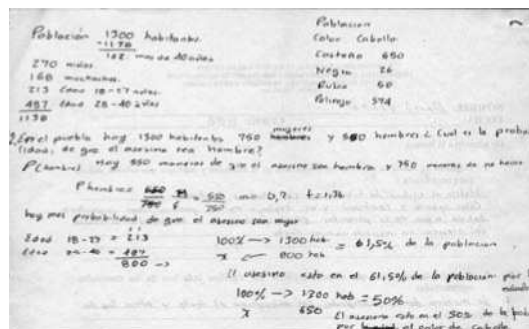 Población 1300 habitantes.
-1138
162 mas de 40 años
270 niños.
168 muchachos.
213 Edad 18-27 años.
487 Edad 28-40 años
1138
Poblacion
Color Cabello
Castaño 650
Negro 26
Rubio 50
Pelirojo 574
2. En el pueblo hay 1300 habitantes 750 mujeres y 550 hombres ¿Cual es la proba
lidad, de que el asesino sea hombre?
P(hombre) Hay 550 maneras de que el asesino sea hombre y 750 maneras de no
P hombre = 550 / 750
hay mas probabilidad de que el asesino sea mujer
Edad 18-27 = 213
487
800 →
100% → 1300 hab = 61,5% de la poblacion
x 800 hab
El asesino esta en el 61,5% de la poblacion por
100% → 1300 hab = 50%
x 650
El asesino esta en el 50% de la
por el color de cabello